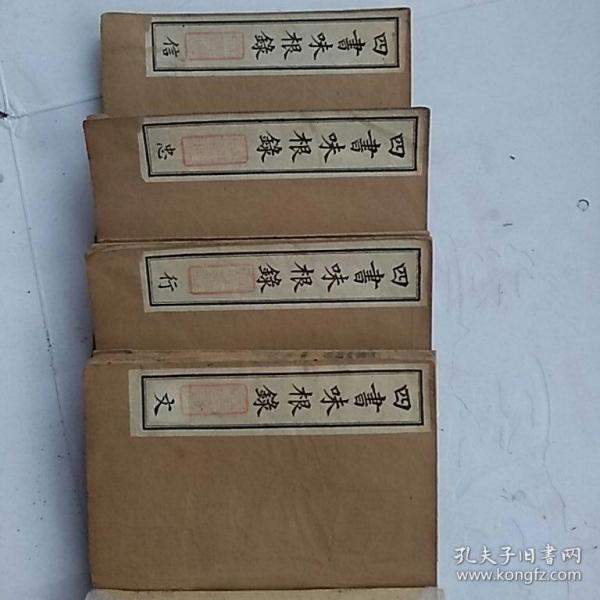 四書味根錄 信
四書味根錄 忠
四書味根錄 行
四書味根錄 文
孔夫子旧书网
www.kongfz.com